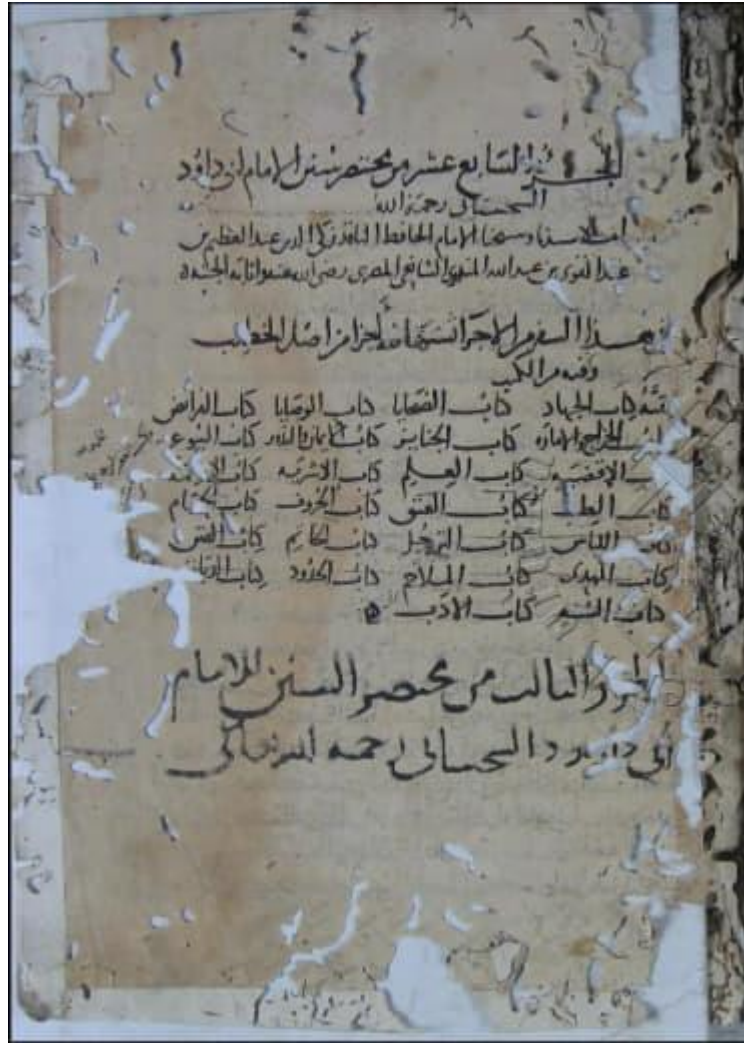 الجزء السابع عشر من مختصر سنن الامام ابى داود
السجستانى رحمه الله
الامام الحافظ الناقد زكى الدين عبد العظيم بن
عبد القوى بن عبد الله المنذرى الشافعى المصرى رضى الله عنه واثابه الجنة
هذا السفر من الاجزا اجزا من اصل الخطيب
وفيه من الكتب
كتاب الجهاد كتاب الضحايا كتاب الوصايا كتاب الفرائض
الخراج والاماره كتاب الجنايز كتاب الايمان والنذور كتاب البيوع
الاقضيه كتاب العلم كتاب الاشربه كتاب
كتاب الطب كتاب العتق كتاب الحروف كتاب الحمام
كتاب اللباس كتاب الترجل كتاب الخاتم كتاب الفتن
كتاب المهدى كتاب الملاحم كتاب الحدود كتاب الديات
كتاب السنه كتاب الادب
الجزء الثالث من مختصر السنن للامام
أبي داوود السجستانى رحمه الله تعالى